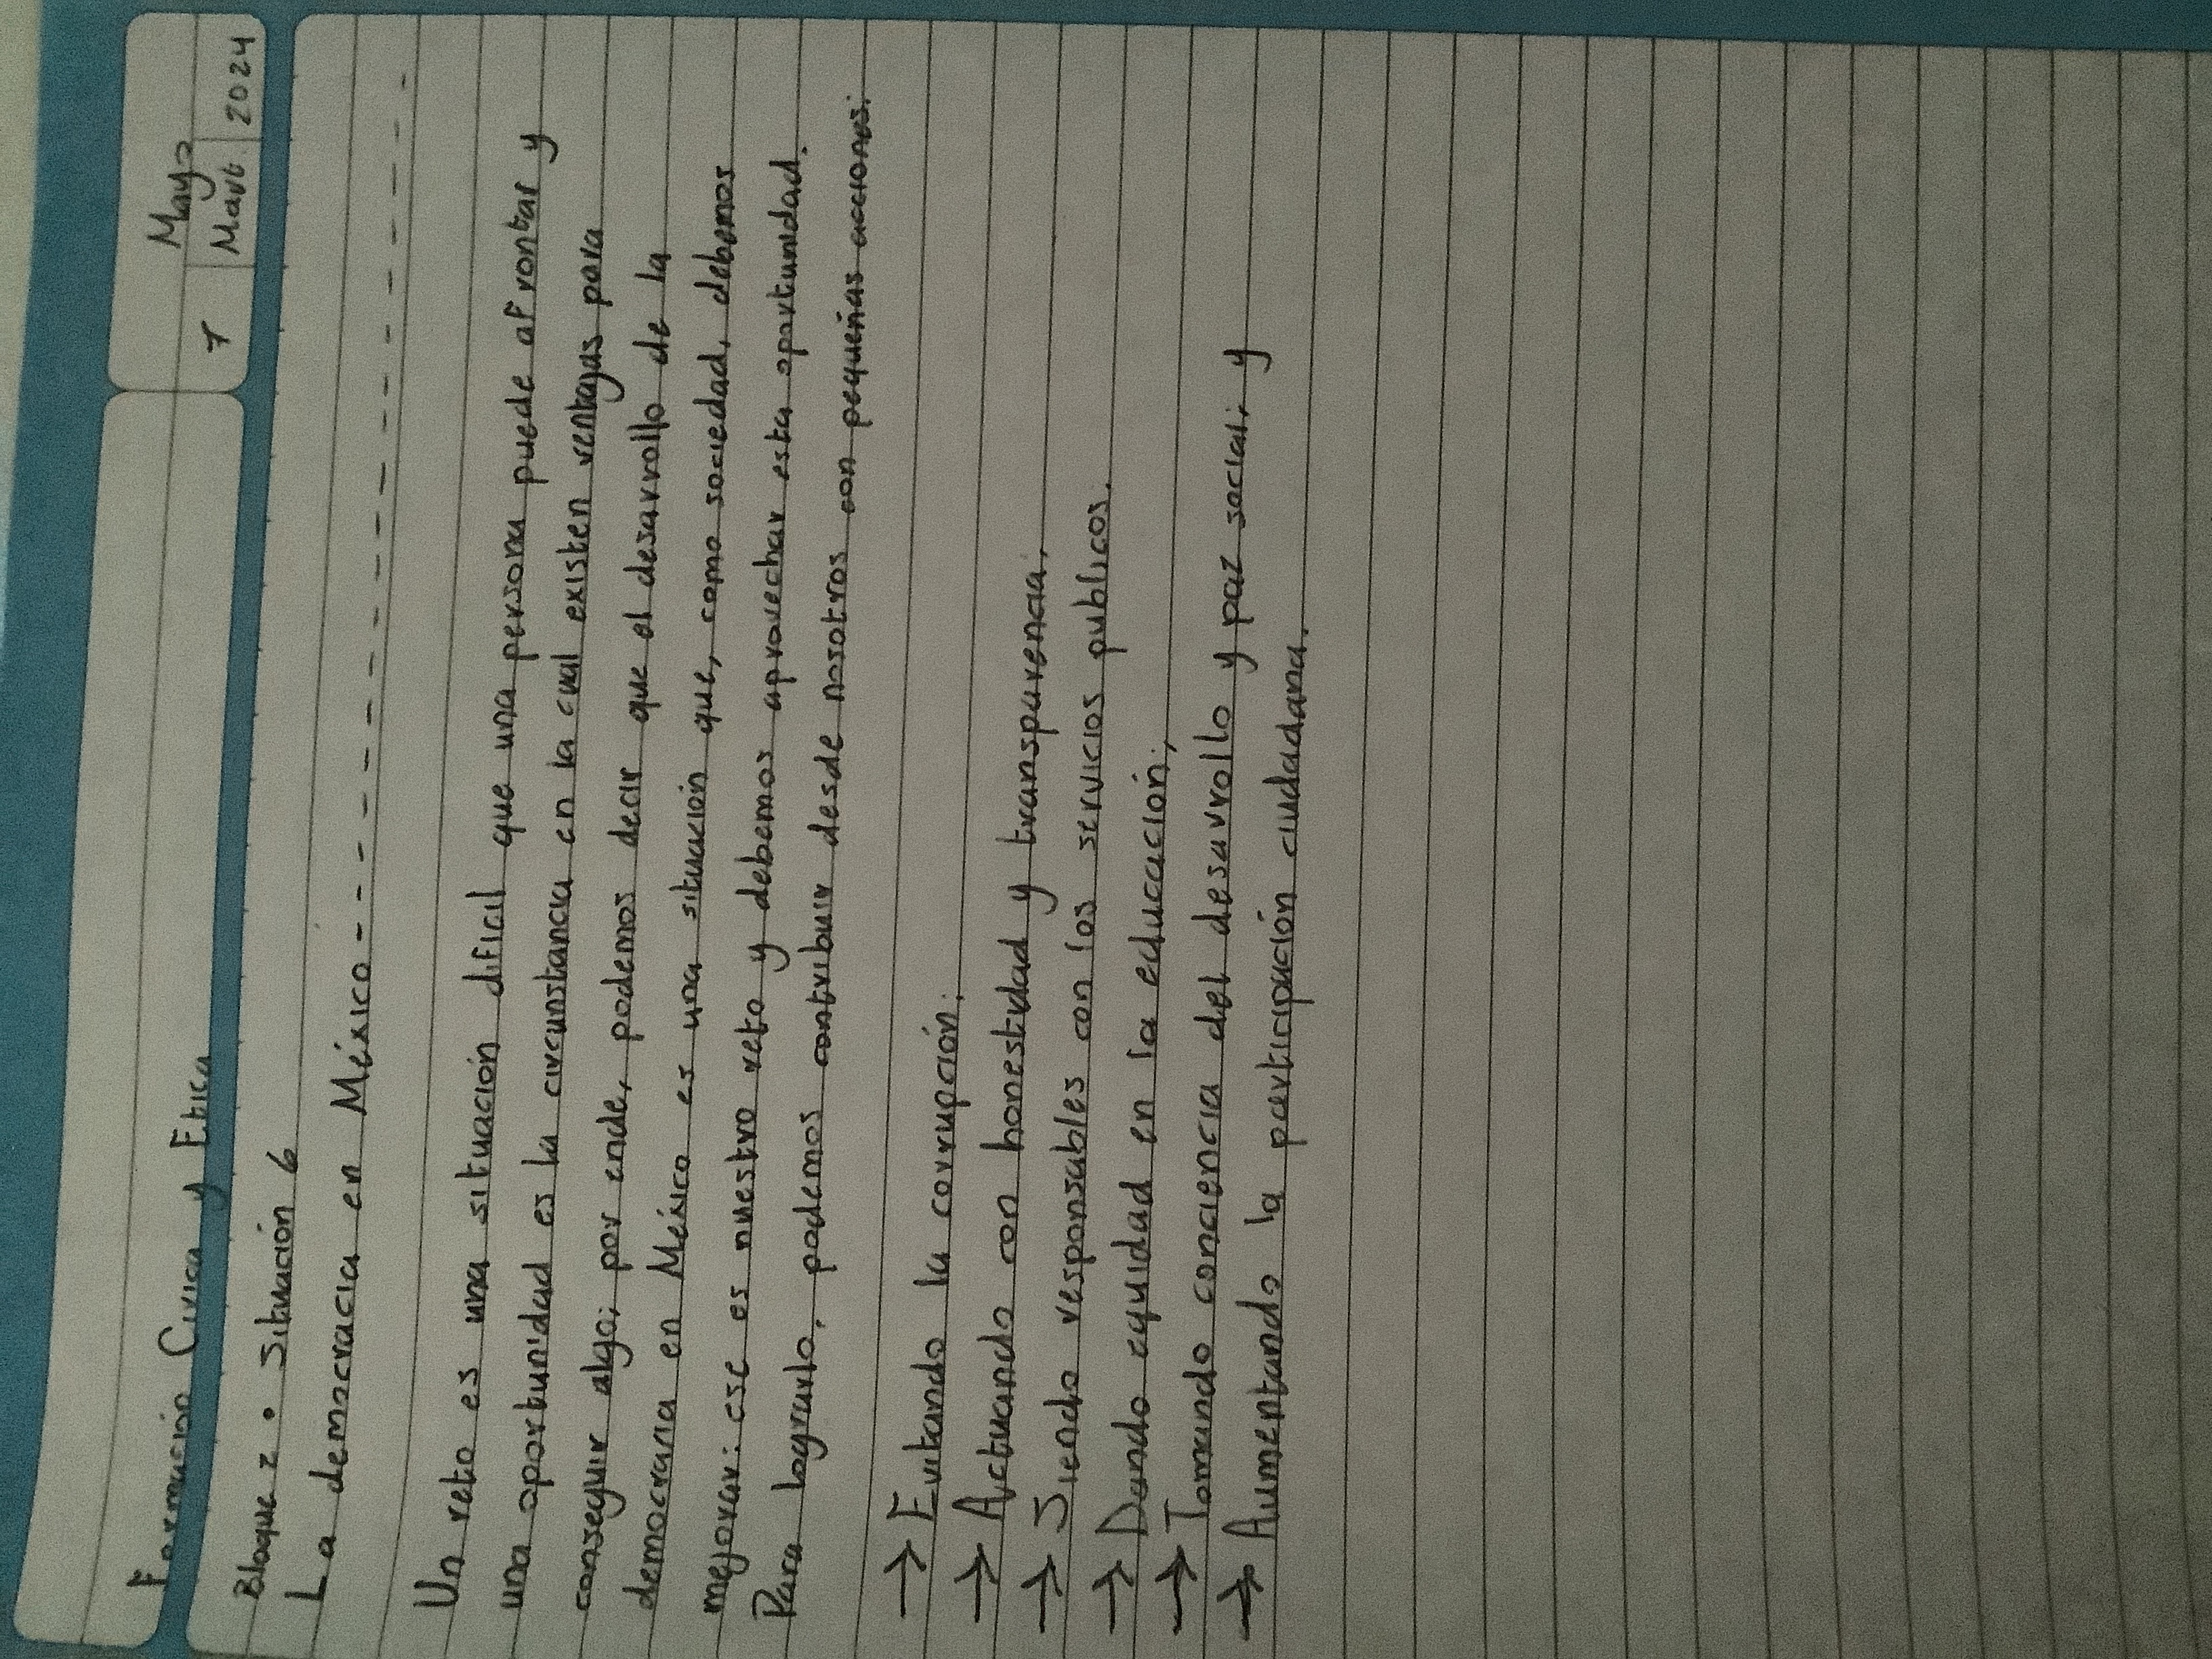 Formación Cívica y Etica
Mayo
7 Mart 2024
Bloque 2 • Situación 6
La democracia en México
Un reto es una situación dificil que una persona puede afrontar y
una oportunidad es la circunstancia en la cual existen ventajas para
conseguir algo; por ende, podemos decir que el desarrollo de la
democracia en México es una situación que, como sociedad, debemos
mejorar: ese es nuestro reto y debemos aprovechar esta oportunidad.
Para lograrlo, podemos contribuir desde nosotros con pequeñas acciones:
→ Evitando la corrupción;
→ Actuando con honestidad y transparencia;
→ Siendo responsables con los servicios publicos.
→ Dando equidad en la educación;
→ Tomando conciencia del desarrollo y paz social; y
→ Aumentando la participación ciudadana.